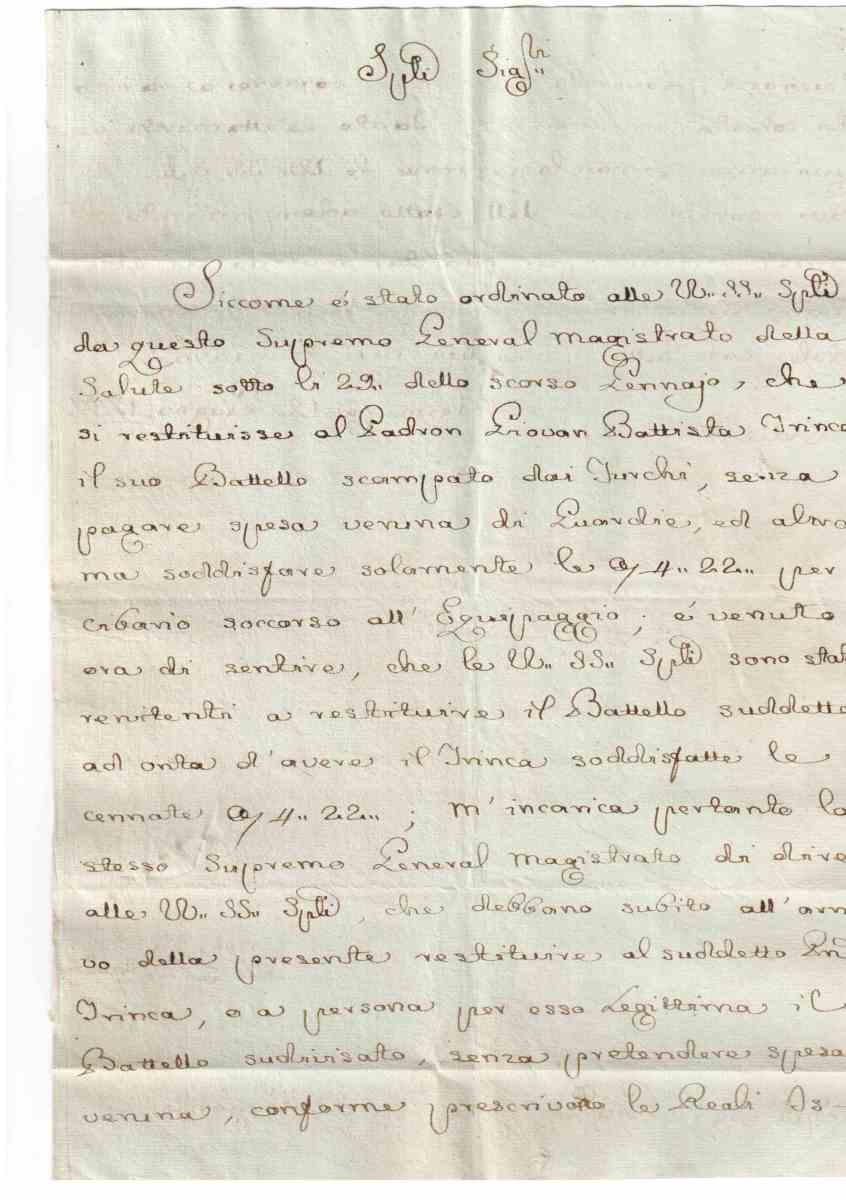 Sp.li Sig.ri
Siccome é stato ordinato alle V.. SS.. Sp.li
da questo Supremo General Magistrato della
Salute sotto li 29.. dello scorso Gennajo, che
si restituisse al Padron Giovan Battista Trinca
il suo Battello scampato dai Turchi, senza
pagare spesa veruna di Guardie, ed altro
ma soddisfare solamente le 4.. 22.. per
cibario soccorso all' Equipaggio; é venuto
ora di sentire, che le V.. SS.. Sp.li sono stat
renitenti a restituire il Battello suddetto
ad onta d'avere il Trinca soddisfatte le
cennate 4.. 22.. ; m'incarica pertanto lo
stesso Supremo General Magistrato di dire
alle V.. SS.. Sp.li, che debbano subito all'arri
vo della presente restituire al suddetto Pn
Trinca, o a persona per esso Legittima il
Battello sudivisato, senza pretendere spesa
veruna, conforme prescrivono le Reali Is-